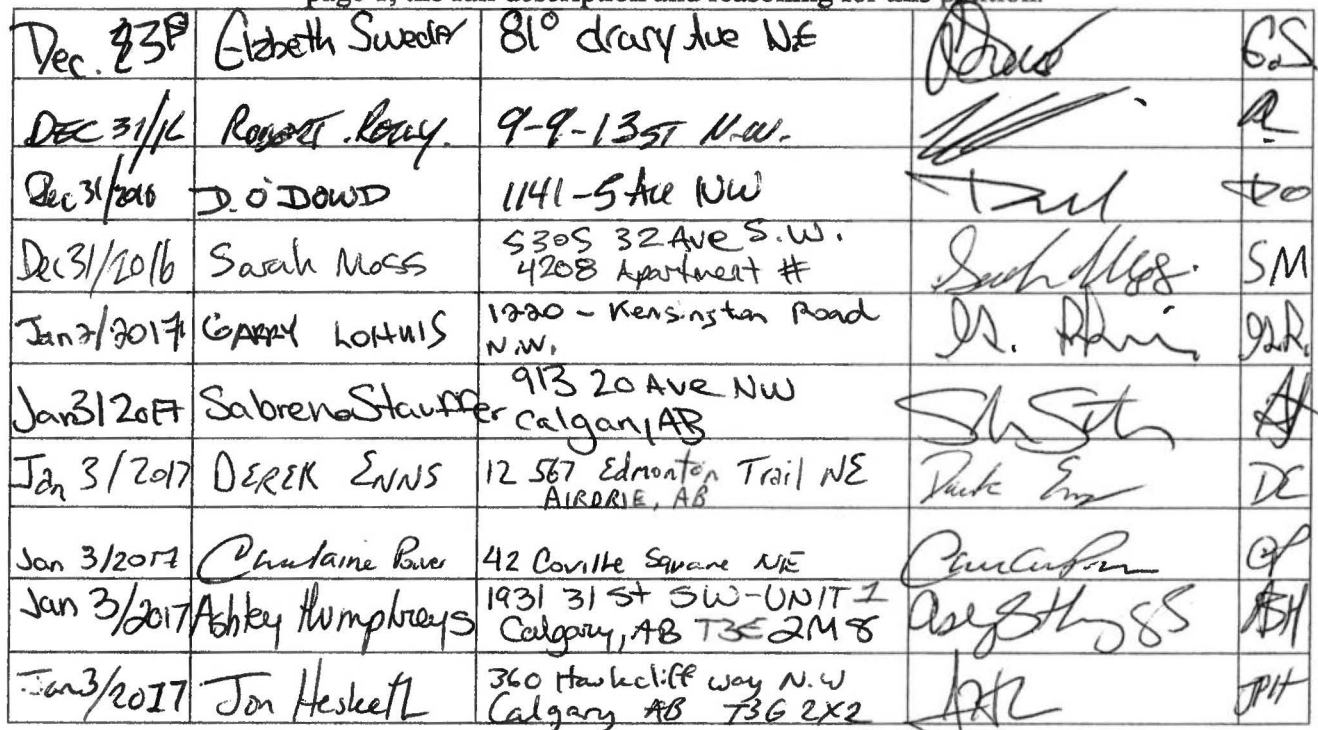 page 1, the full description and reasoning for this petition.
Dec. 23 Elzbeth 81° drary Ave NE E.S
DEC 31/16 ROBERT. 9-9-13 ST N.W.
Dec 31/2016 D. O'DOWD 1141-5 Ave NW DO
Dec 31/2016 Sarah Moss 5305 32 Ave S.W. SM
4208 Apartment #
Jan 2/2017 GARRY LOHUIS 1220 - Kensington Road
N.W.
Jan 3/2017 Sabrena Stauffer 913 20 Ave NW
Calgary, AB
Jan 3/2017 DEREK ENNS 12 567 Edmonton Trail NE DE
AIRDRIE, AB
Jan 3/2017 42 Coville Square NE CP
Jan 3/2017 Ashley Humphreys 1931 31 St SW-UNIT 1 ASH
Calgary, AB T3E 2M8
Jan 3/2017 Jon Hesketh 360 Hawkcliff way N.W JPH
Calgary AB T3G 2X2